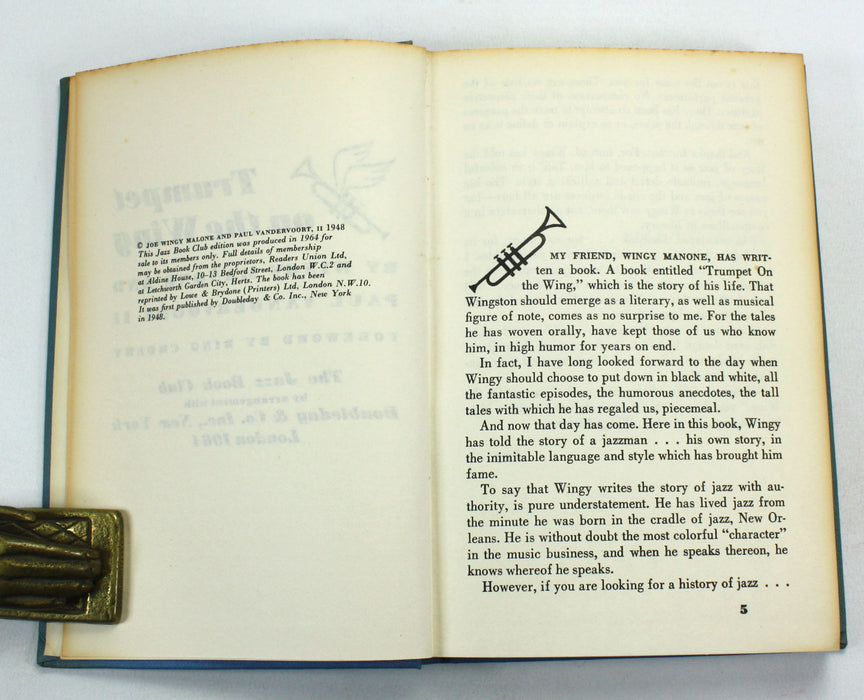 © JOE WINGY MALONE AND PAUL VANDERVOORT, II 1948
This Jazz Book Club edition was produced in 1964 for
sale to its members only. Full details of membership
may be obtained from the proprietors, Readers Union Ltd,
at Aldine House, 10-13 Bedford Street, London W.C.2 and
at Letchworth Garden City, Herts. The book has been
reprinted by Lowe & Brydone (Printers) Ltd, London N.W.10.
It was first published by Doubleday & Co. Inc., New York
in 1948.
MY FRIEND, WINGY MANONE, HAS WRIT-
ten a book. A book entitled “Trumpet On
the Wing,” which is the story of his life. That
Wingston should emerge as a literary, as well as musical
figure of note, comes as no surprise to me. For the tales
he has woven orally, have kept those of us who know
him, in high humor for years on end.
In fact, I have long looked forward to the day when
Wingy should choose to put down in black and white, all
the fantastic episodes, the humorous anecdotes, the tall
tales with which he has regaled us, piecemeal.
And now that day has come. Here in this book, Wingy
has told the story of a jazzman . . . his own story, in
the inimitable language and style which has brought him
fame.
To say that Wingy writes the story of jazz with au-
thority, is pure understatement. He has lived jazz from
the minute he was born in the cradle of jazz, New Or-
leans. He is without doubt the most colorful “character”
in the music business, and when he speaks thereon, he
knows whereof he speaks.
However, if you are looking for a history of jazz . . .
5